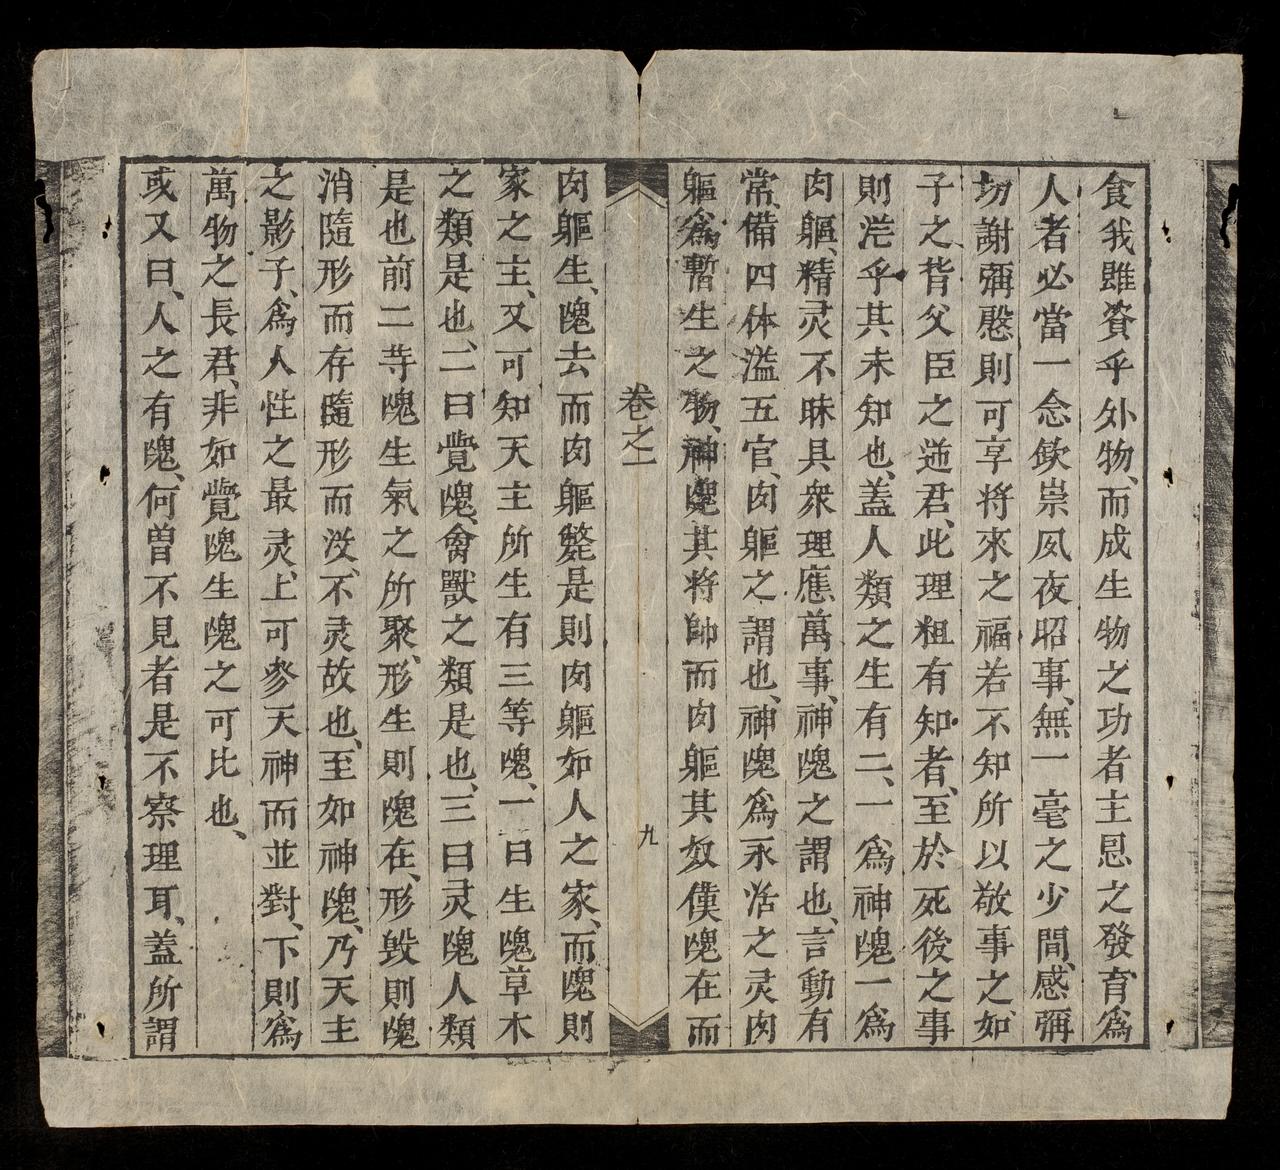 食我雖資乎外物、而成生物之功者主恩之發育、為
人者必當一念欽崇夙夜昭事、無一毫之少間、感彌
切謝彌慇則可享將來之福若不知所以敬事之、如
子之背父臣之逆君、此理粗有知者、至於死後之事
則茫乎其未知也、蓋人類之生有二、一為神魂一為
肉軀、精灵不昧具衆理應萬事、神魂之謂也、言動有
常、備四体溢五官、肉軀之謂也、神魂為永活之灵肉
軀為暫生之物、神魂其將帥而肉軀其奴僕魂在而
卷之一
九
肉軀生、魂去而肉軀斃是則肉軀如人之家、而魂則
家之主、又可知天主所生有三等魂、一曰生魂草木
之類是也、二曰覺魂、禽獸之類是也、三曰灵魂人類
是也前二䓁魂生氣之所聚、形生則魂在、形毀則魂
消隨形而存隨形而沒、不灵故也、至如神魂、乃天主
之影子、為人性之最灵、上可參天神而並對、下則為
萬物之長君、非如覺魂生魂之可比也、
或又曰、人之有魂、何曽不見者是不察理耳、蓋所謂